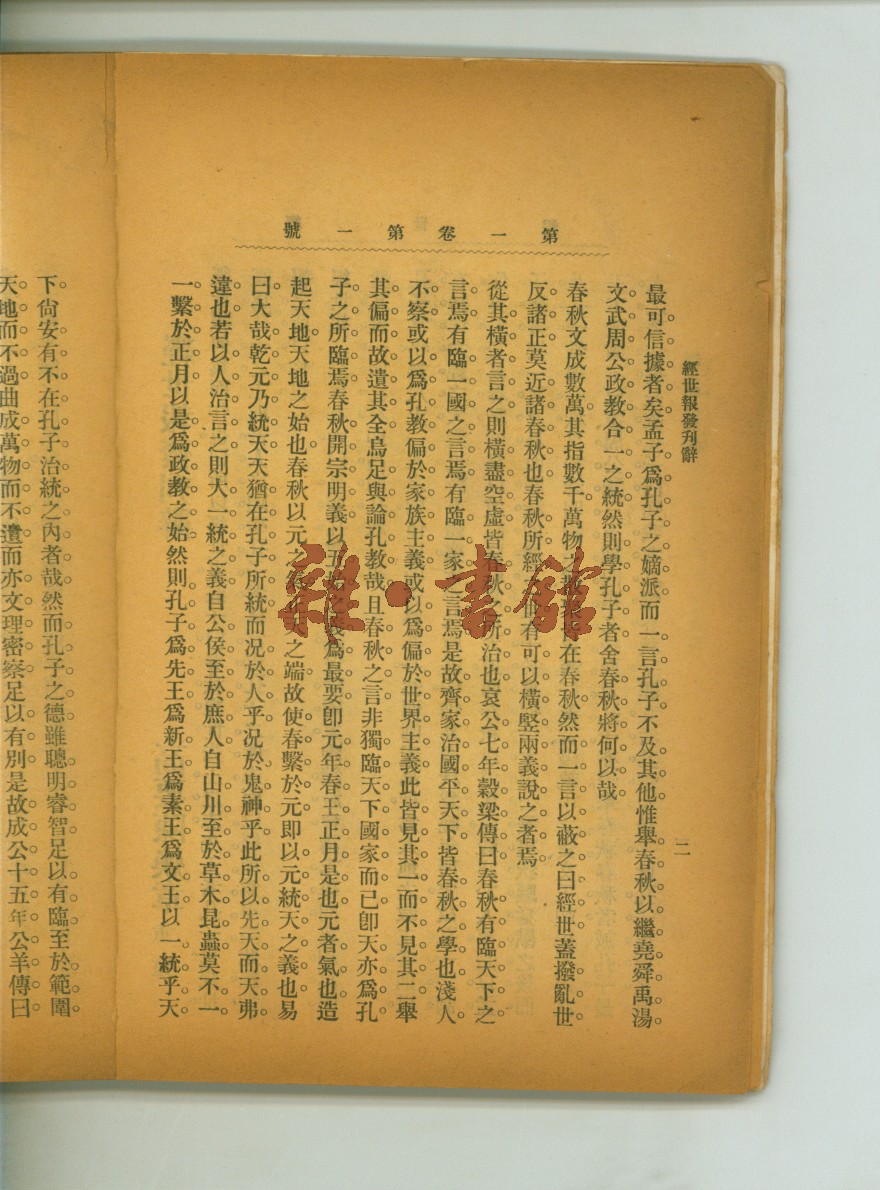 經世報發刊辭
二
第一卷第一號
最可信據者矣孟子爲孔子之嫡派而一言孔子不及其他惟舉春秋以繼堯舜禹湯
文武周公政教合一之統然則學孔子者舍春秋將何以哉
春秋文成數萬其指數千萬物之在春秋然而一言以蔽之曰經世蓋撥亂世
反諸正莫近諸春秋也春秋所經世有可以橫竪兩義說之者焉
從其橫者言之則橫盡空虛皆春秋之所治也哀公七年穀梁傳曰春秋有臨天下之
言焉有臨一國之言焉有臨一家之言焉是故齊家治國平天下皆春秋之學也淺人
不察或以爲孔教偏於家族主義或以爲偏於世界主義此皆見其一而不見其二舉
其偏而故遺其全烏足與論孔教哉且春秋之言非獨臨天下國家而已卽天亦爲孔
子之所臨焉春秋開宗明義以五始之義爲最要卽元年春王正月是也元者氣也造
起天地天地之始也春秋以元之氣正天之端故使春繫於元即以元統天之義也易
曰大哉乾元乃統天天猶在孔子所統而况於人乎况於鬼神乎此所以先天而天弗
違也若以人治言之則大一統之義自公侯至於庶人自山川至於草木昆蟲莫不一
一繫於正月以是爲政教之始然則孔子爲先王爲新王爲素王爲文王以一統乎天
下尙安有不在孔子治統之內者哉然而孔子之德雖聰明睿智足以有臨至於範圍
天地而不過曲成萬物而不遺而亦文理密察足以有別是故成公十五年公羊傳曰
雜·書館